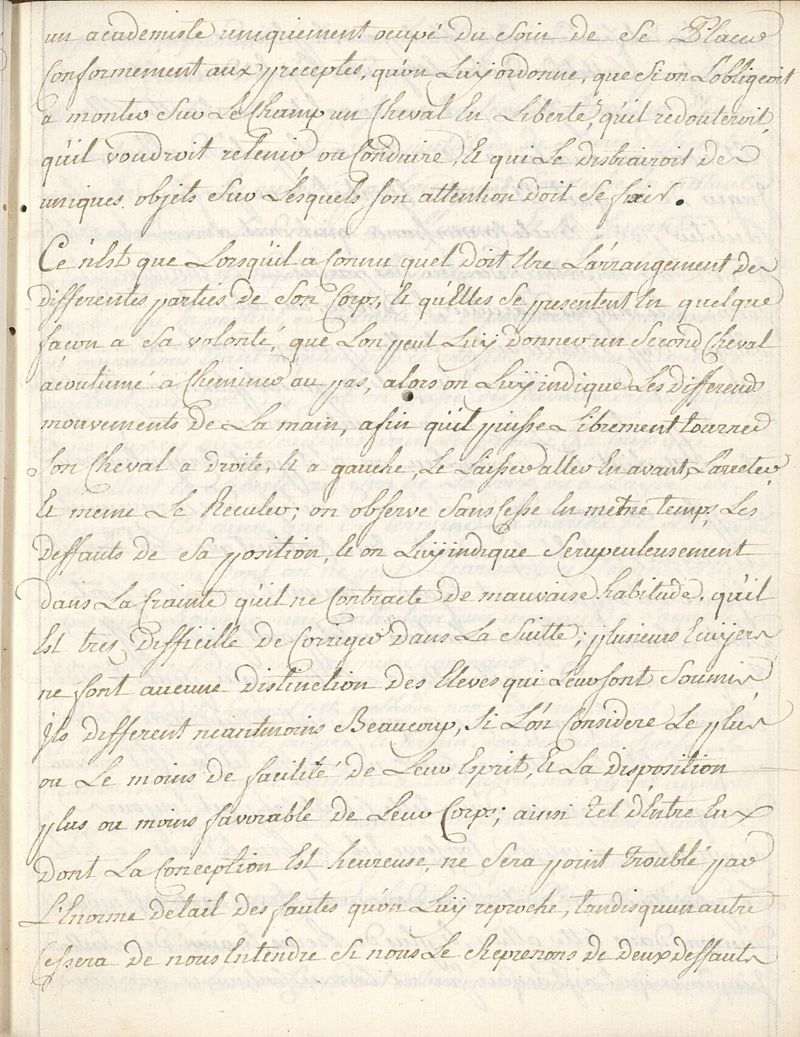 un academiste uniquement ocupé du soin de se Placer
Conformement aux preceptes, qu'on Luy ordonne, que si on L'obligeoit
a monter sur Le Champ un Cheval En Liberté, qu'il redouteroit,
qu'il voudroit retenir ou Conduire, Et qui Le distrairoit des
uniques objets sur Lesquels son attention doit se fixer.
Ce n'Est que Lorsqu'il a Connu quel doit Etre L'arrangement des
differentes parties de son Corps, Et qu'Elles se presentent En quelque
façon a sa volonté, que L'on peut Luy donner un second Cheval
acoutumé a Cheminer au pas, alors on Luy indique Les differends
mouvements de La main, afin qu'il puisse Librement tourner
son Cheval a droite, Et a gauche, Le Laisser aller En avant, L'arreter
Et meme Le Reculer; on observe sans Cesse En metre temps Les
deffauts de sa position, Et on Luy indique scrupuleusement
dans La Crainte qu'il ne Contracte de mauvaise habitude, qu'il
Est tres difficille de Corriger dans La Suitte; plusieurs Ecuyers
ne font aucune distinction des Eleves qui Leur sont soumis
ils different neantmoins Beaucoup, si L'on Considere Le plus
ou Le moins de facilité de Leur Esprit, Et La disposition
plus ou moins favorable de Leur Corps; ainsi tel d'Entre Eux
dont La Conception Est heureuse, ne sera point troublé par
L'Enorme detail des fautes qu'on Luy reproche, tandis qu'un autre
Cessera de nous Entendre si nous Le Reprenons de deux deffauts